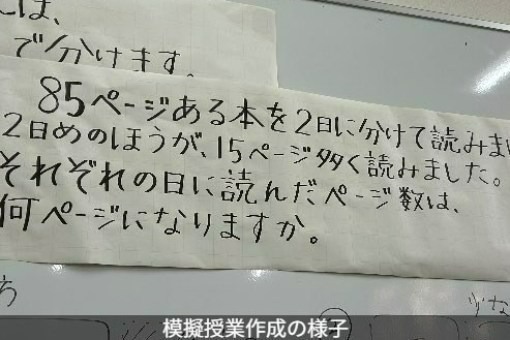 には、
で分けます。
85ページある本を2日に分けて読みまし
2日めのほうが、15ページ多く読みました。
それぞれの日に読んだページ数は、
何ページになりますか。
少な
模擬授業作成の様子